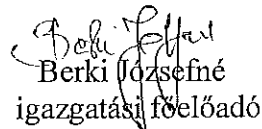 Berki Józsefné
igazgatási főelőadó